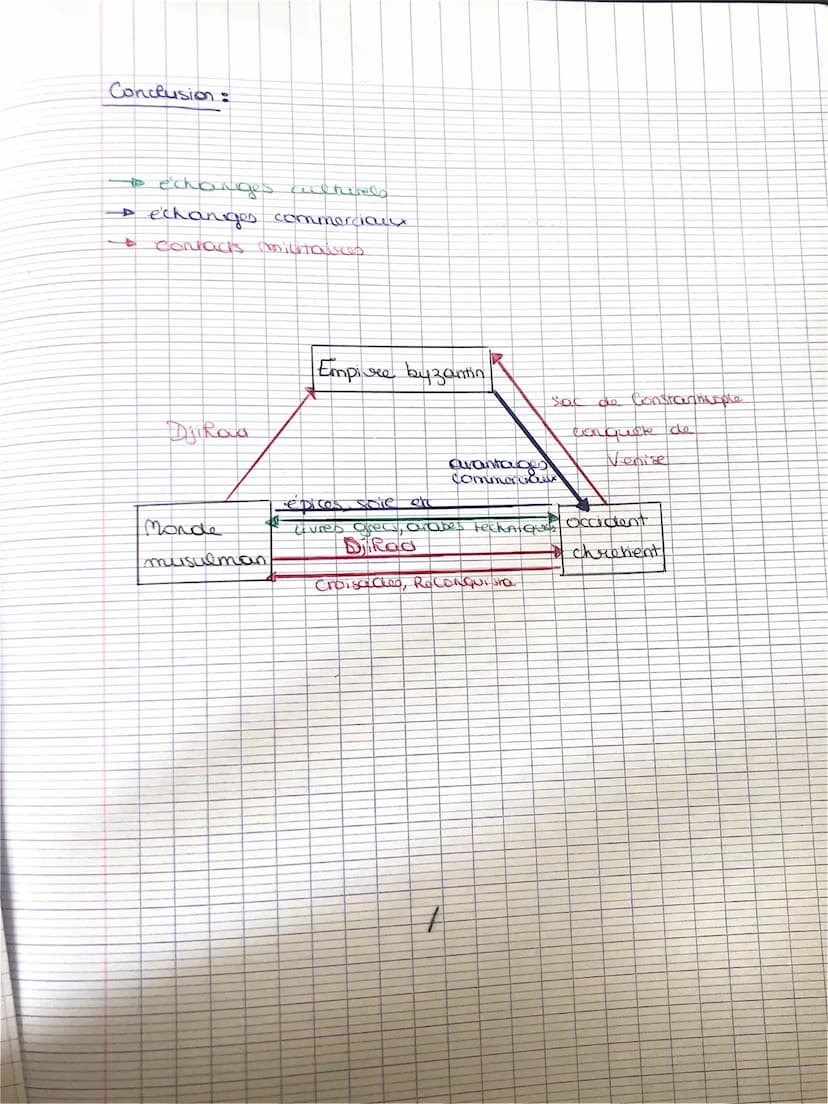 Conclusion :
→ échanges culturels
→ échanges commerciaux
→ contacts militaires
Empire byzantin
Djihad
sac de Constantinople
conquête de
Venise
avantages
commerciaux
épices, soie etc
Monde
musulman
livres grecs, arabes techniques
Djihad
Croisades, Reconquista
occident
chretient